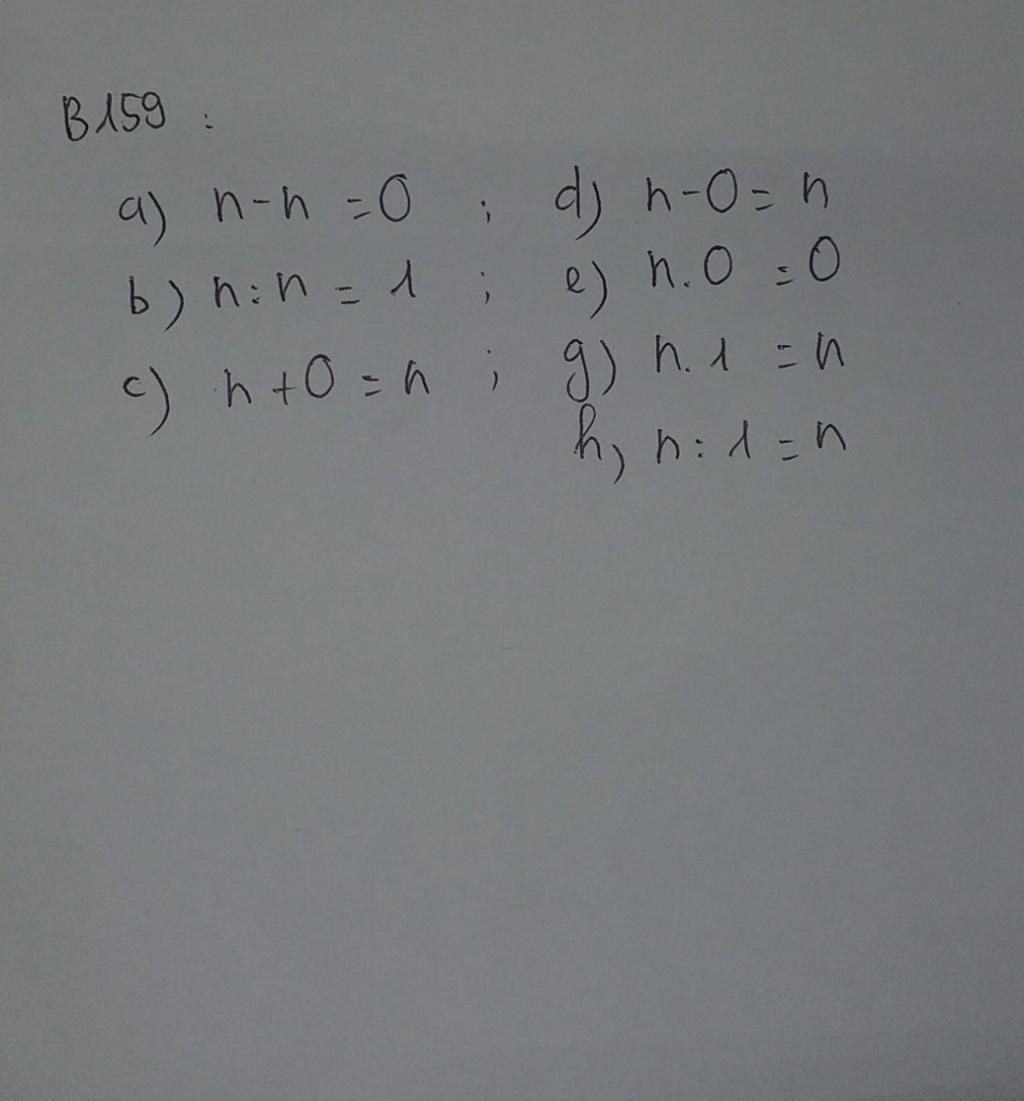 B159 :
a) n-n =0 ; d) n-0= n
b) n:n = 1 ; e) n.0 =0
c) n+0 = n ; g) n.1 =n
h, n:1 =n